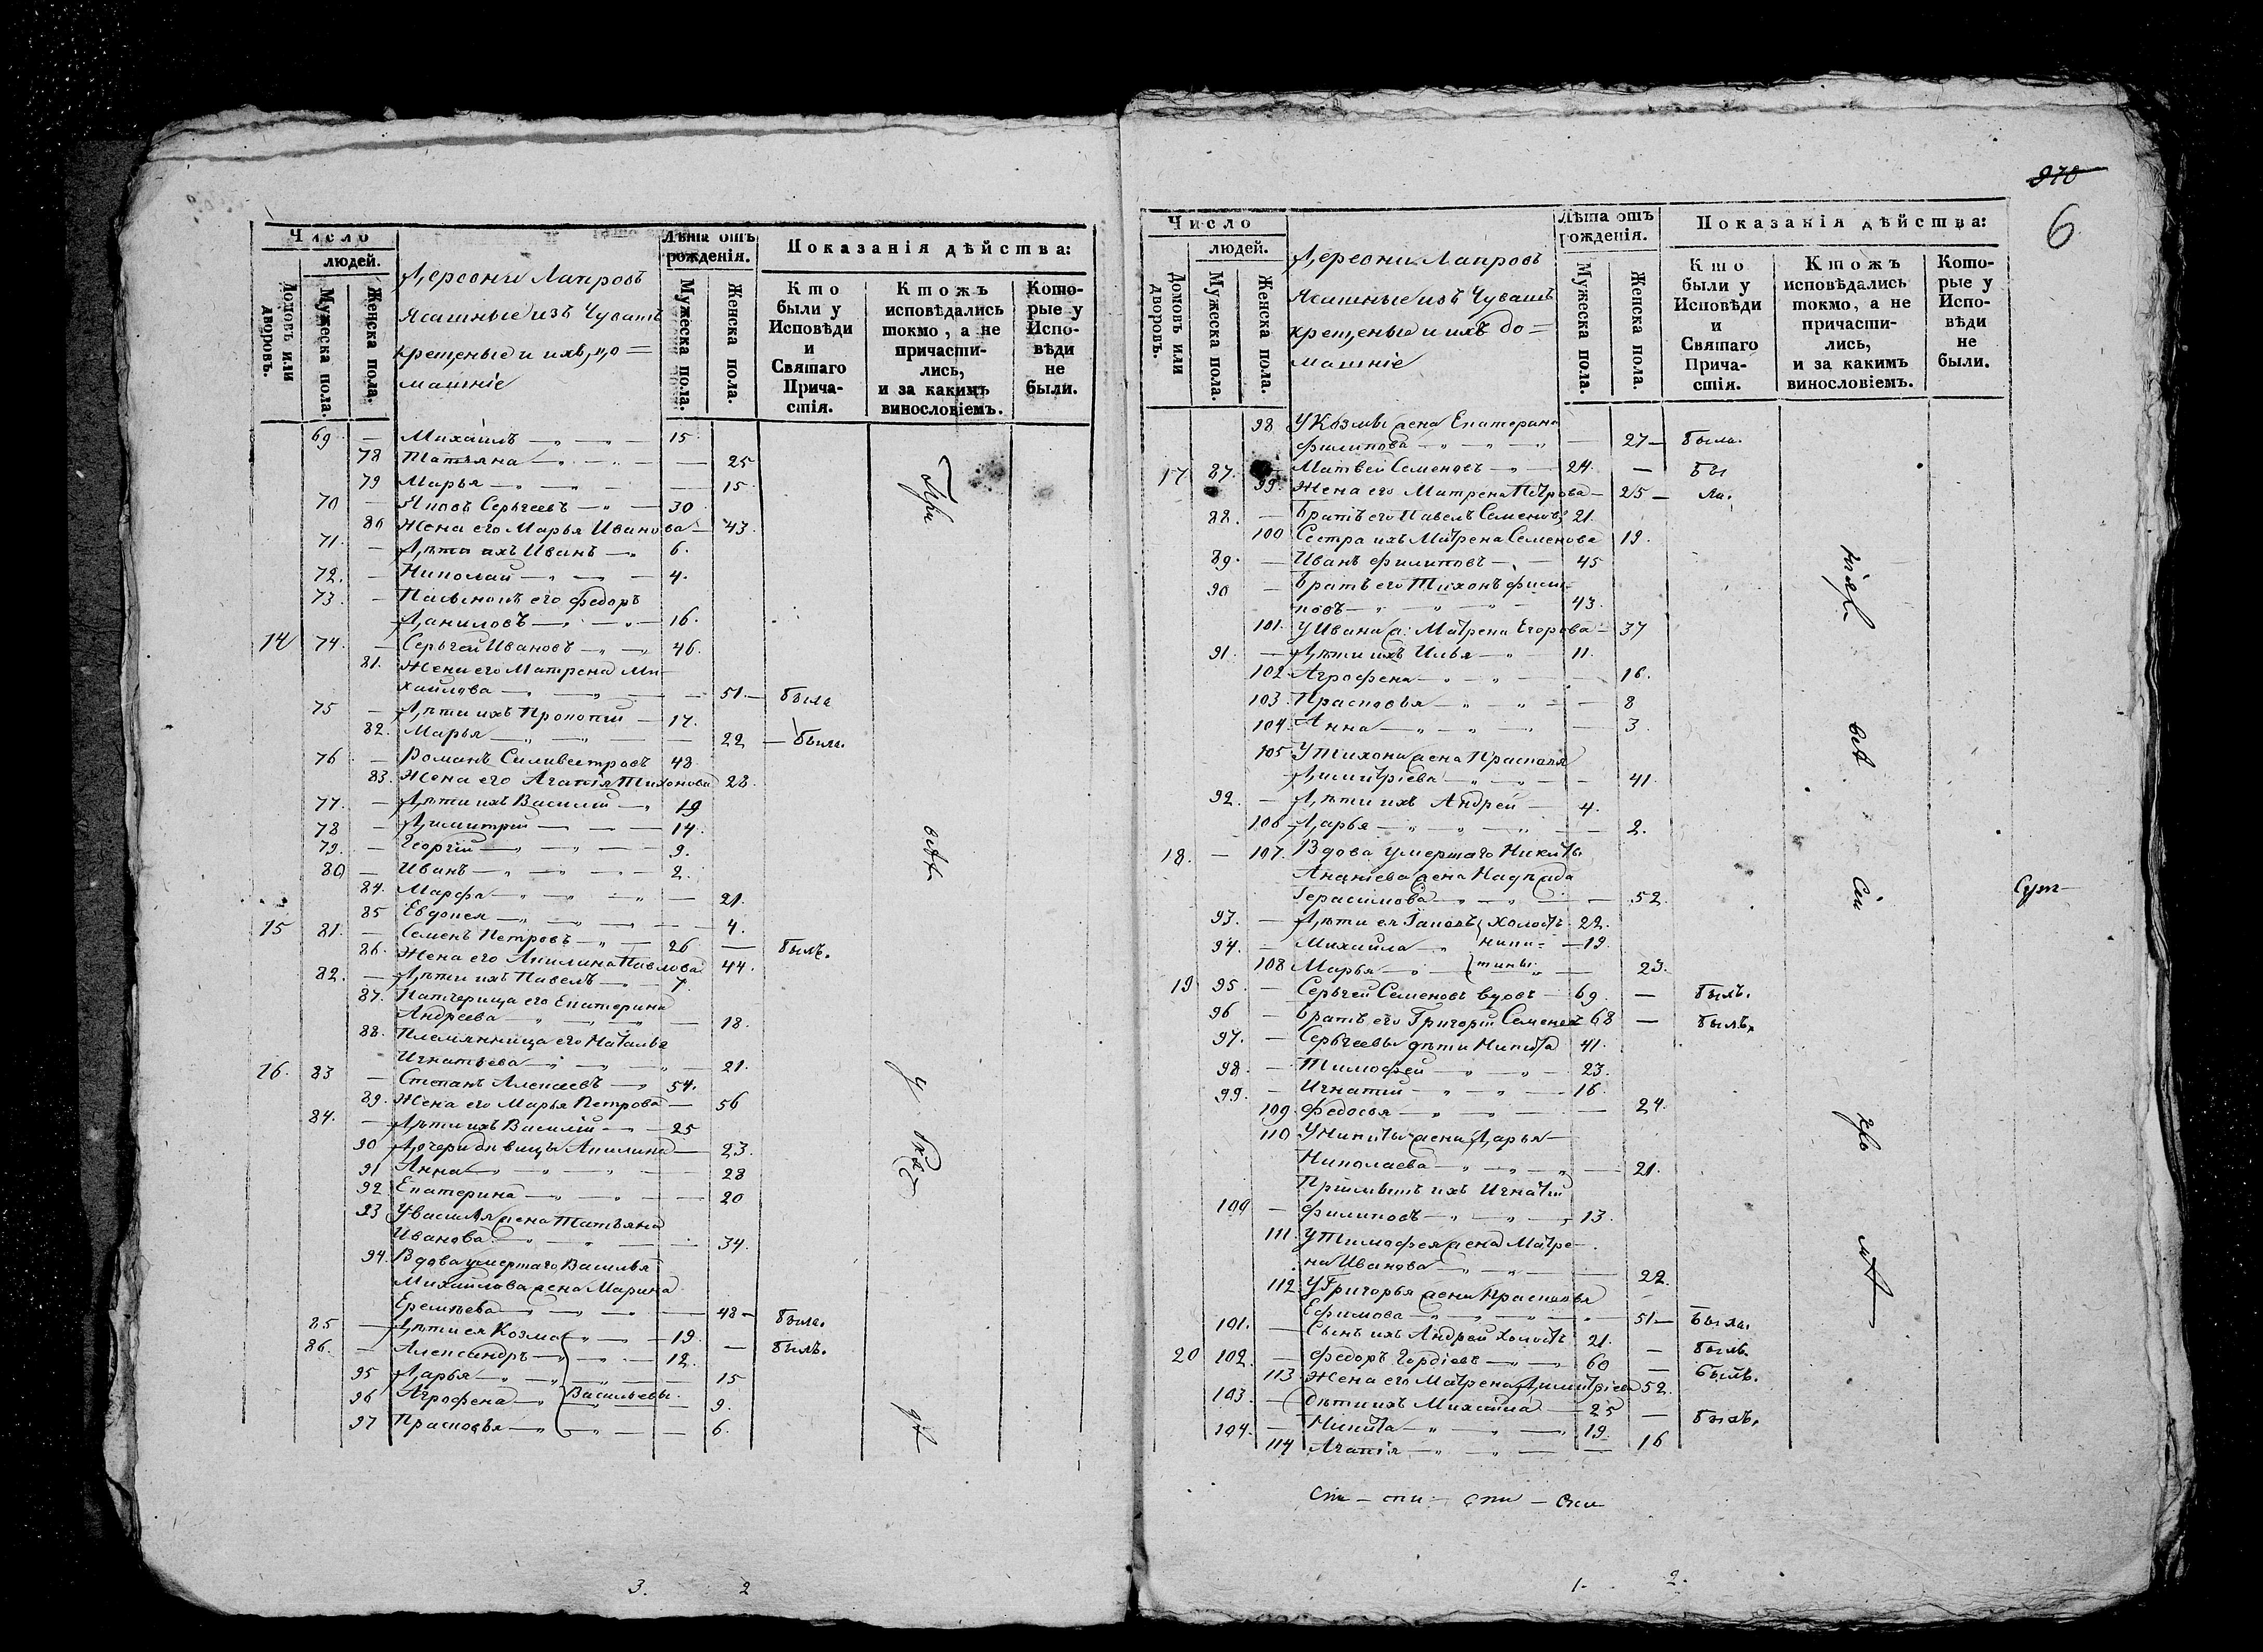 Число
людей.
Домовъ или дворовъ.
Мужеска пола.
Женска пола.
Деревни Лапровъ
Ясашные изъ Чувашъ
крещеные и ихъ до=
машніе
Лѣта отъ рожденія.
Мужеска пола.
Женска пола.
Показанія дѣйства:
Кто были у Исповѣди и Святаго Причастія.
Ктожъ исповѣдались токмо, а не причастились, и за какимъ винословіемъ.
Которые у Исповѣди не были.
69 — Михаилъ — 15
78 Татьяна — 25
79 Марья — 15
70 — Яковъ Сергѣевъ — 30
80 Жена его Марья Иванова — 43
71. — Дѣти ихъ Иванъ — 6.
72. — Николай — 4.
73. — Пасынокъ его Федоръ
Даниловъ — 16.
14 74. — Сергѣй Ивановъ — 46.
81. Жена его Матрена Ми-
хайлова — 51. — была
75 — Дѣти ихъ Прокопій — 17.
82. Марья — 22 — была.
76 — Романъ Силивестровъ 48.
83. Жена его Агапія Тихонова 28.
77. — Дѣти ихъ Василій — 19
78 — Димитрій — 14.
79. — Георгій — 9.
80 — Иванъ — 2.
84. Марфа — 21.
85 Евдокея — 4.
15 81. — Семенъ Петровъ — 26 — былъ.
86. Жена его Акилина Павлова 44.
82. — Дѣти ихъ Павелъ — 7.
87. Патчерица его Екатерина
Андреева — 18.
88. Племянница его Наталья
Игнатьева — 21.
16. 83 — Степанъ Алексеевъ — 54.
89. Жена его Марья Петрова — 56
84. — Дѣти ихъ Василій — 25
90 Дочери дѣвицы Акилина — 23.
91 Анна — 28
92 Екатерина — 20
93 У Василья жена Татьяна
Иванова — 34.
94. Вдова умершаго Василья
Михайлова жена Марина
Еремѣева — 48 — была.
85 — Дѣти ея Козма — 19. — былъ.
86. — Александръ — 12.
95 Дарья — 15
96 Агрофена — Васильевы. 9.
97 Прасковья — 6.
3. 2
970
6
Число
людей.
Домовъ или дворовъ.
Мужеска пола.
Женска пола.
Деревни Лапровъ
Ясашные изъ Чувашъ
крещеные и ихъ до=
машніе
Лѣта отъ рожденія.
Мужеска пола.
Женска пола.
Показанія дѣйства:
Кто были у Исповѣди и Святаго Причастія.
Ктожъ исповѣдались токмо, а не причастились, и за какимъ винословіемъ.
Которые у Исповѣди не были.
98 У Козмы жена Екатерина
Филипова — 27 — была.
17 87. — Матвей Семеновъ — 24. — бы
99. Жена его Матрена Петрова — 25 — ла.
88. — Братъ его Павелъ Семеновъ 21.
100 Сестра ихъ Матрена Семенова 19.
89. — Иванъ Филиповъ — 45
90 — Братъ его Тихонъ Фили-
повъ — 43.
101. У Ивана жена Матрена Егорова — 37
91. — Дѣти ихъ Илья — 11.
102 Агрофена — 16.
103. Прасковья — 8
104. Анна — 3.
105 У Тихона жена Прасковья
Димитріева — 41.
92. — Дѣти ихъ Андрей — 4.
106 Дарья — 2.
18. — 107. Вдова умершаго Никиты
Ананіева жена Надѣжда
Герасимова — 52.
93. — Дѣти ея Яковъ холостъ 22.
94. — Михайла — Ники- — 19.
108 Марья — тины — 23.
19 95. — Сергѣй Семеновъ вдовъ — 69. — былъ.
96 — Братъ его Григорій Семеновъ 68 — былъ.
97. — Сергѣевы дѣти Никита 41.
98. — Тимофей — 23.
99. — Игнатій — 16.
109. Федосья — 24.
110 У Никиты жена Дарья
Николаева — 21.
Пріимышъ ихъ Игнатій
100 — Филиповъ — 13.
111. У Тимофея жена Матре-
на Иванова — 22.
112. У Григорья жена Прасковья
Ефимова — 51 — была.
101. — Сынъ ихъ Андрей холостъ 21. — былъ.
20 102. — Федоръ Гордіевъ — 60 — былъ.
113 Жена его Матрена Димитріева 52.
103. — Дѣти ихъ Михайла — 25 — былъ.
104. — Никита — 19.
114 Агапія — 16
1. 2.